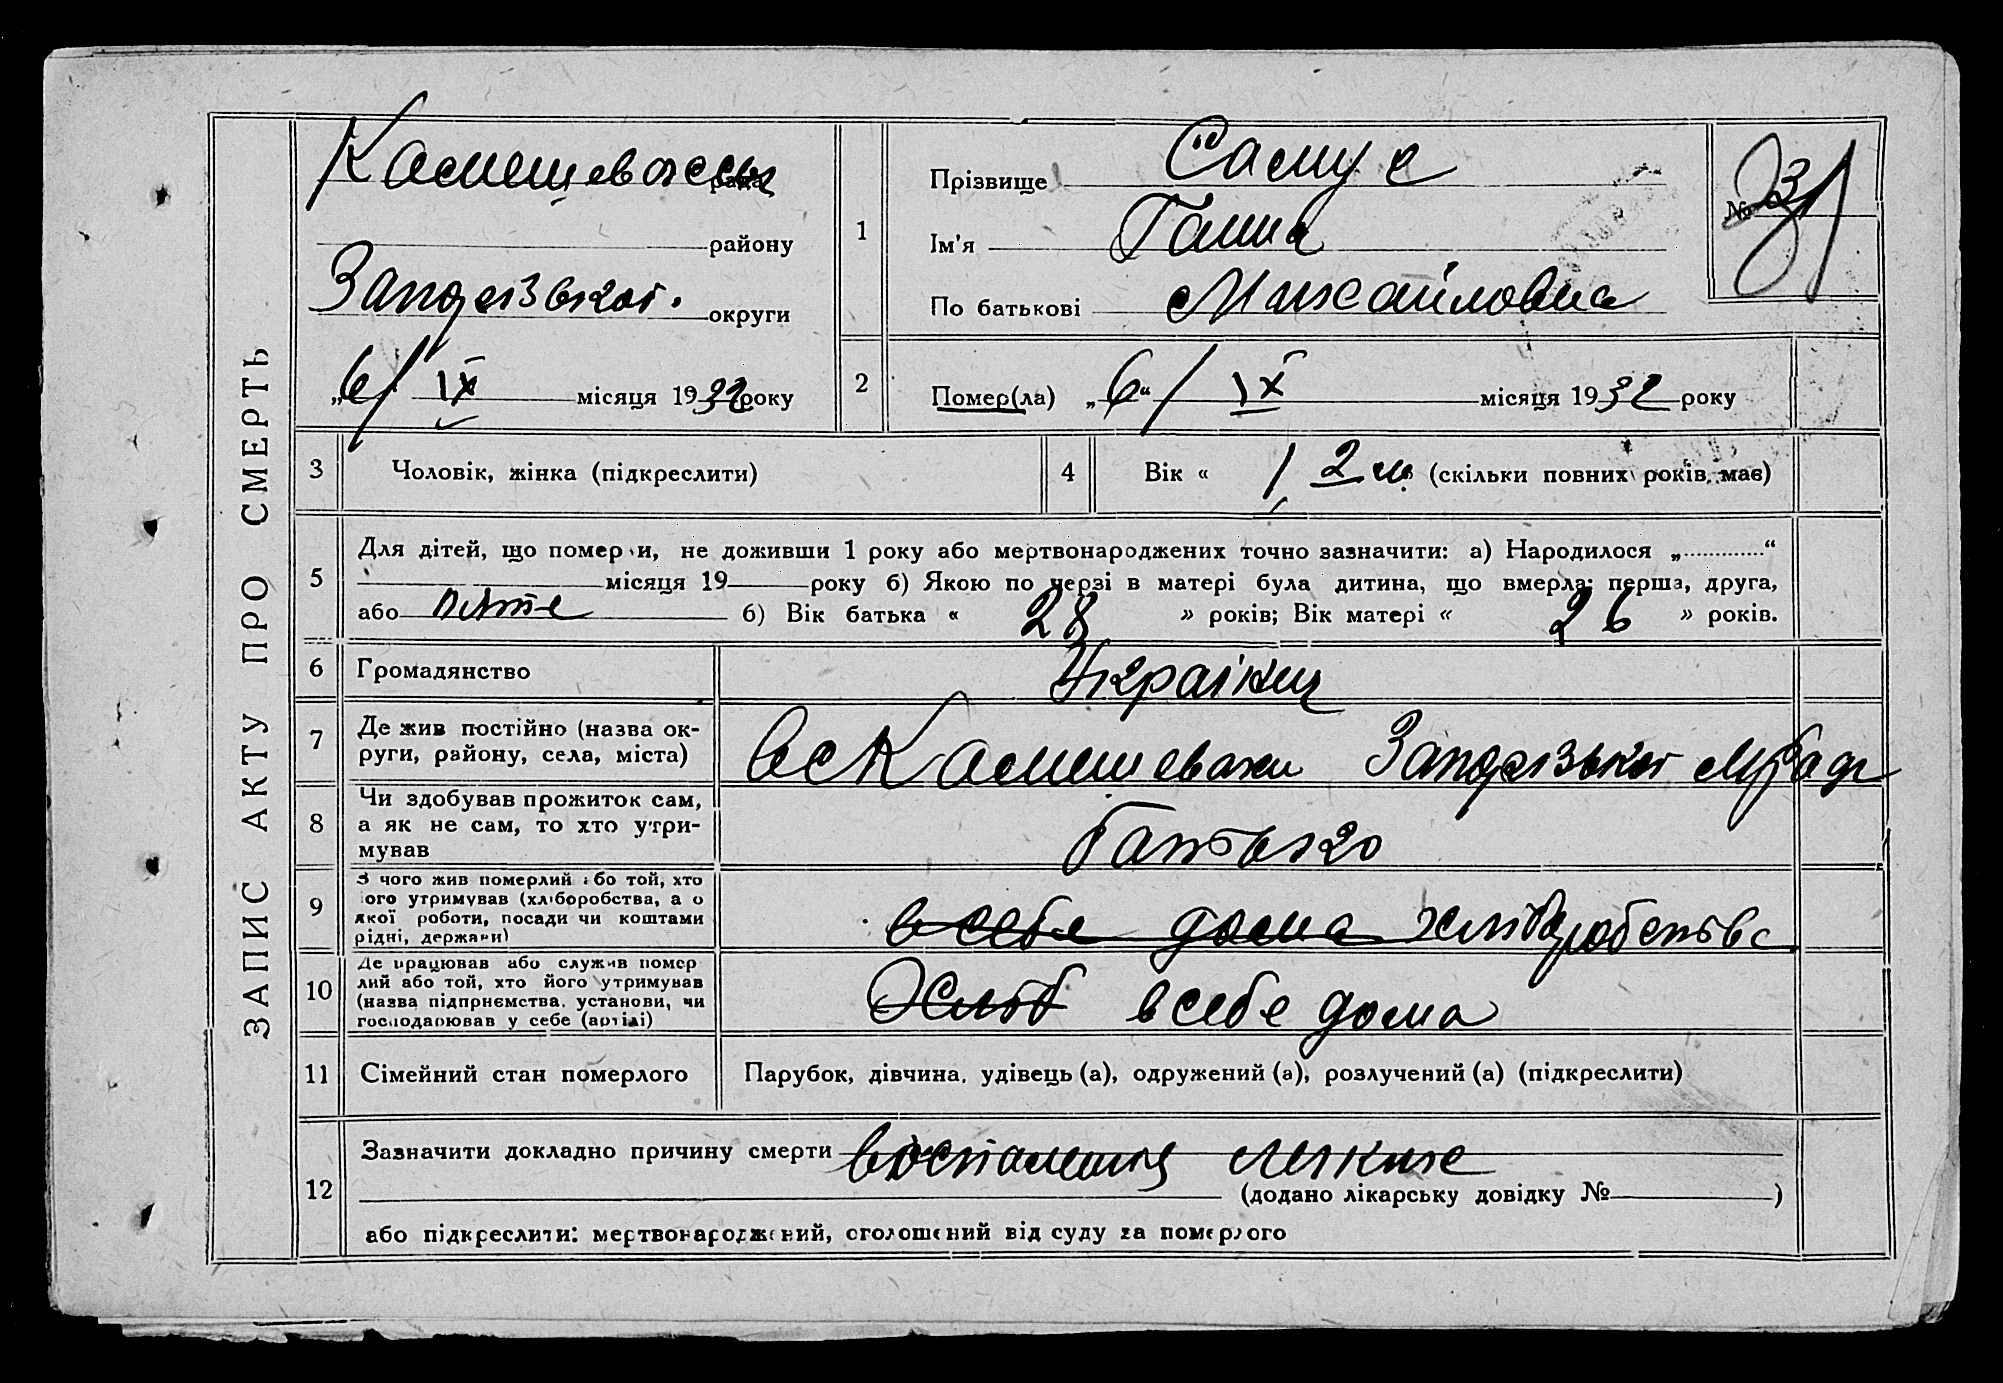 ЗАПИС АКТУ ПРО СМЕРТЬ
Камешеваськ рада
району
Запорізької округи
„6/ IX місяця 1932 року
1
Прізвище Самус
Ім'я Ганна
По батькові Михайловна
№ 31
2
Помер(ла) „6“/ IX місяця 1932 року
3 Чоловік, жінка (підкреслити)
4 Вік « 1/2 м (скільки повних років має)
5
Для дітей, що померли, не доживши 1 року або мертвонароджених точно зазначити: а) Народилося „ “
місяця 19 року б) Якою по черзі в матері була дитина, що вмерла: перша, друга,
або пяте б) Вік батька « 28 » років; Вік матері « 26 » років.
6 Громадянство Украінец
7 Де жив постійно (назва ок-
руги, району, села, міста)
в с Камешеваха Запорізької м ради
8 Чи здобував прожиток сам,
а як не сам, то хто утри-
мував
батько
9 З чого жив померлий або той, хто
його утримував (хліборобства, а о
якої роботи, посади чи коштами
рідні, держави)
в себе дома хліборобства
10 Де працював або служив помер
лий або той, хто його утримував
(назва підпрнємства, установи, чи
господарював у себе (артілі)
Хліб в себе дома
11 Сімейний стан померлого
Парубок, дівчина, удівець (а), одружений (а), розлучений (а) (підкреслити)
12 Зазначити докладно причину смерти воспаление легких
(додано лікарську довідку № )
або підкреслити: мертвонароджений, оголошений від суду за померлого